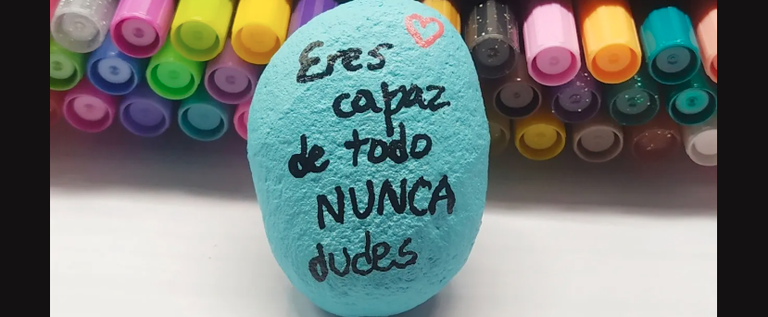 Eres
capaz
de todo
NUNCA
dudes